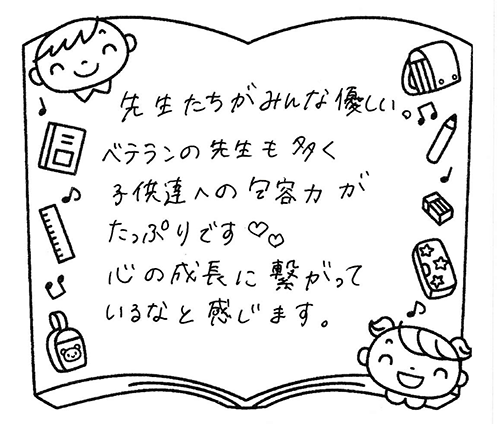 先生たちがみんな優しい。
ベテランの先生も多く
子供達への包容力が
たっぷりです♡♡
心の成長に繋がって
いるなと感じます。